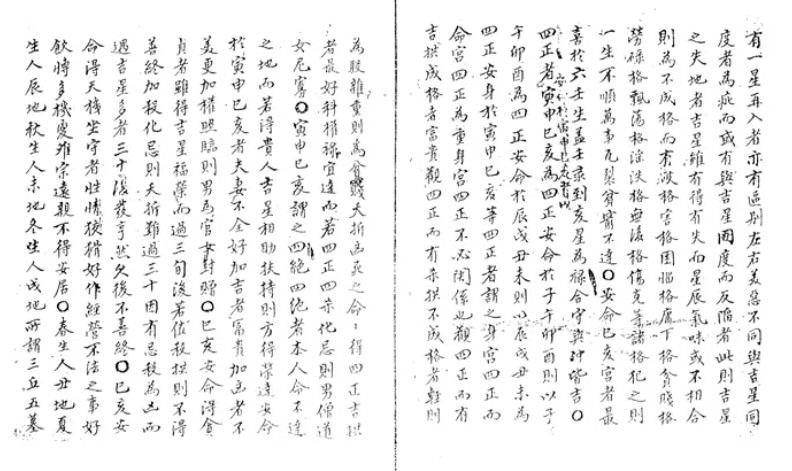 有一星再入者亦有區別左右美惡不同與吉星同
度者為疵而或有與吉星同度而反陷者此則吉星
之失地者吉星雖有得有失而星辰氣味或不相合
則為不成格而有破格害格困惱格廉下格貧賤格
勞碌格飄蕩格除決格無後格傷克等諸格犯之則
一生不順萬事瓦裂貧窮不達〇安命巳亥宮者最
喜於六壬生蓋壬彔到亥星為祿合守與沖皆吉〇
四正者寅申巳亥為四正安命於子午卯酉則以子
安命於寅申巳亥者以
午卯酉為四正安命於辰戌丑未則以辰戌丑未為
四正安身於寅申巳亥等四正者謂之身宮四正而
命宮四正為重身宮四正不必関係也觀四正而有
吉拱成格者富貴觀四正而有杀拱不成格者輕則
為股雜重則為貧賤夭折凶死之命〻得四正吉拱
者最好科權祿宜逢而若四正四杀化忌則男僧道
女尼寡〇寅申巳亥謂之四絕四絕者本人命不逢
之地而若得貴人吉星相助扶持則方得榮達安命
於寅申巳亥者夫妻不全好加吉者富貴加凶者不
美更加權照臨則男為官女封贈〇巳亥安命得貪
貞者雖得吉星福榮而過三旬後若值殺拱則不得
善終加殺化忌則夭折難過三十因有忌殺為凶而
遇吉星多者三十後發亨然久後不善終〇巳亥安
命得天機坐守者性情狡猾好作經營不法之事好
飲時多機變離宗遠親不得安居〇春生人丑地夏
生人辰地秋生人未地冬生人戌地所謂三丘五墓